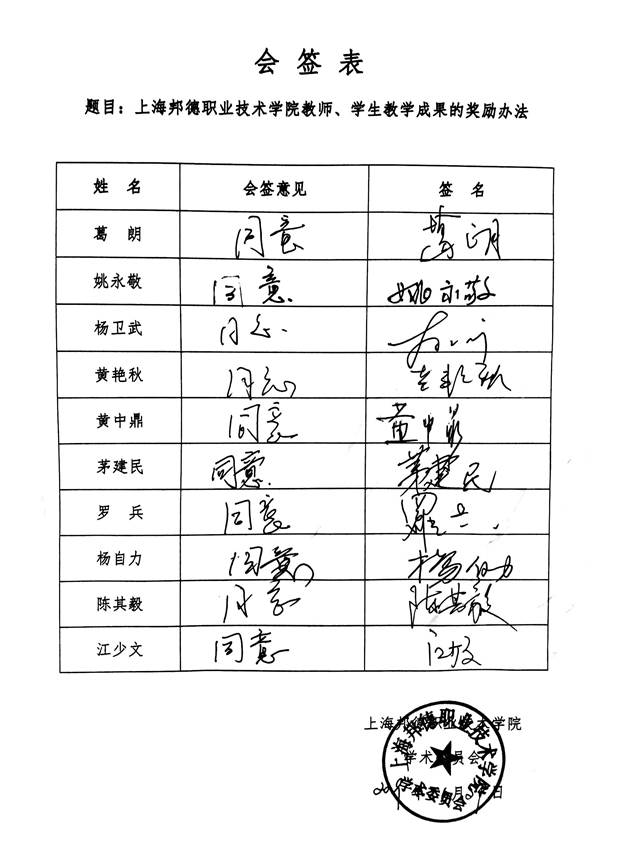 会签表
题目：上海邦德职业技术学院教师、学生教学成果的奖励办法
姓 名 会签意见 签 名
葛 朗 同意 葛朗
姚永敬 同意. 姚永敬
杨卫武 同意.
黄艳秋 同意
黄中鼎 同意 黄中鼎
茅建民 同意. 茅建民
罗 兵 同意 罗兵.
杨自力 同意 杨自力
陈其毅 同意 陈其毅
江少文 同意
上海邦德职业技术学院
学术委员会
月 日
上海邦德职业技术学院
学术委员会